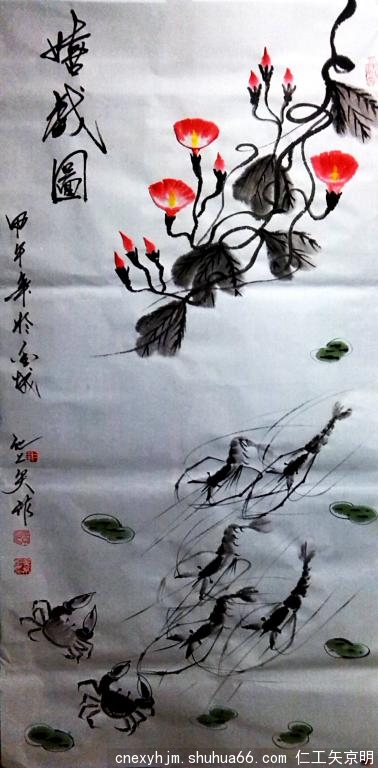 嬉戲圖
甲午年於
仁工矢作
cnexyhjm.shuhua66.com 仁工矢京明